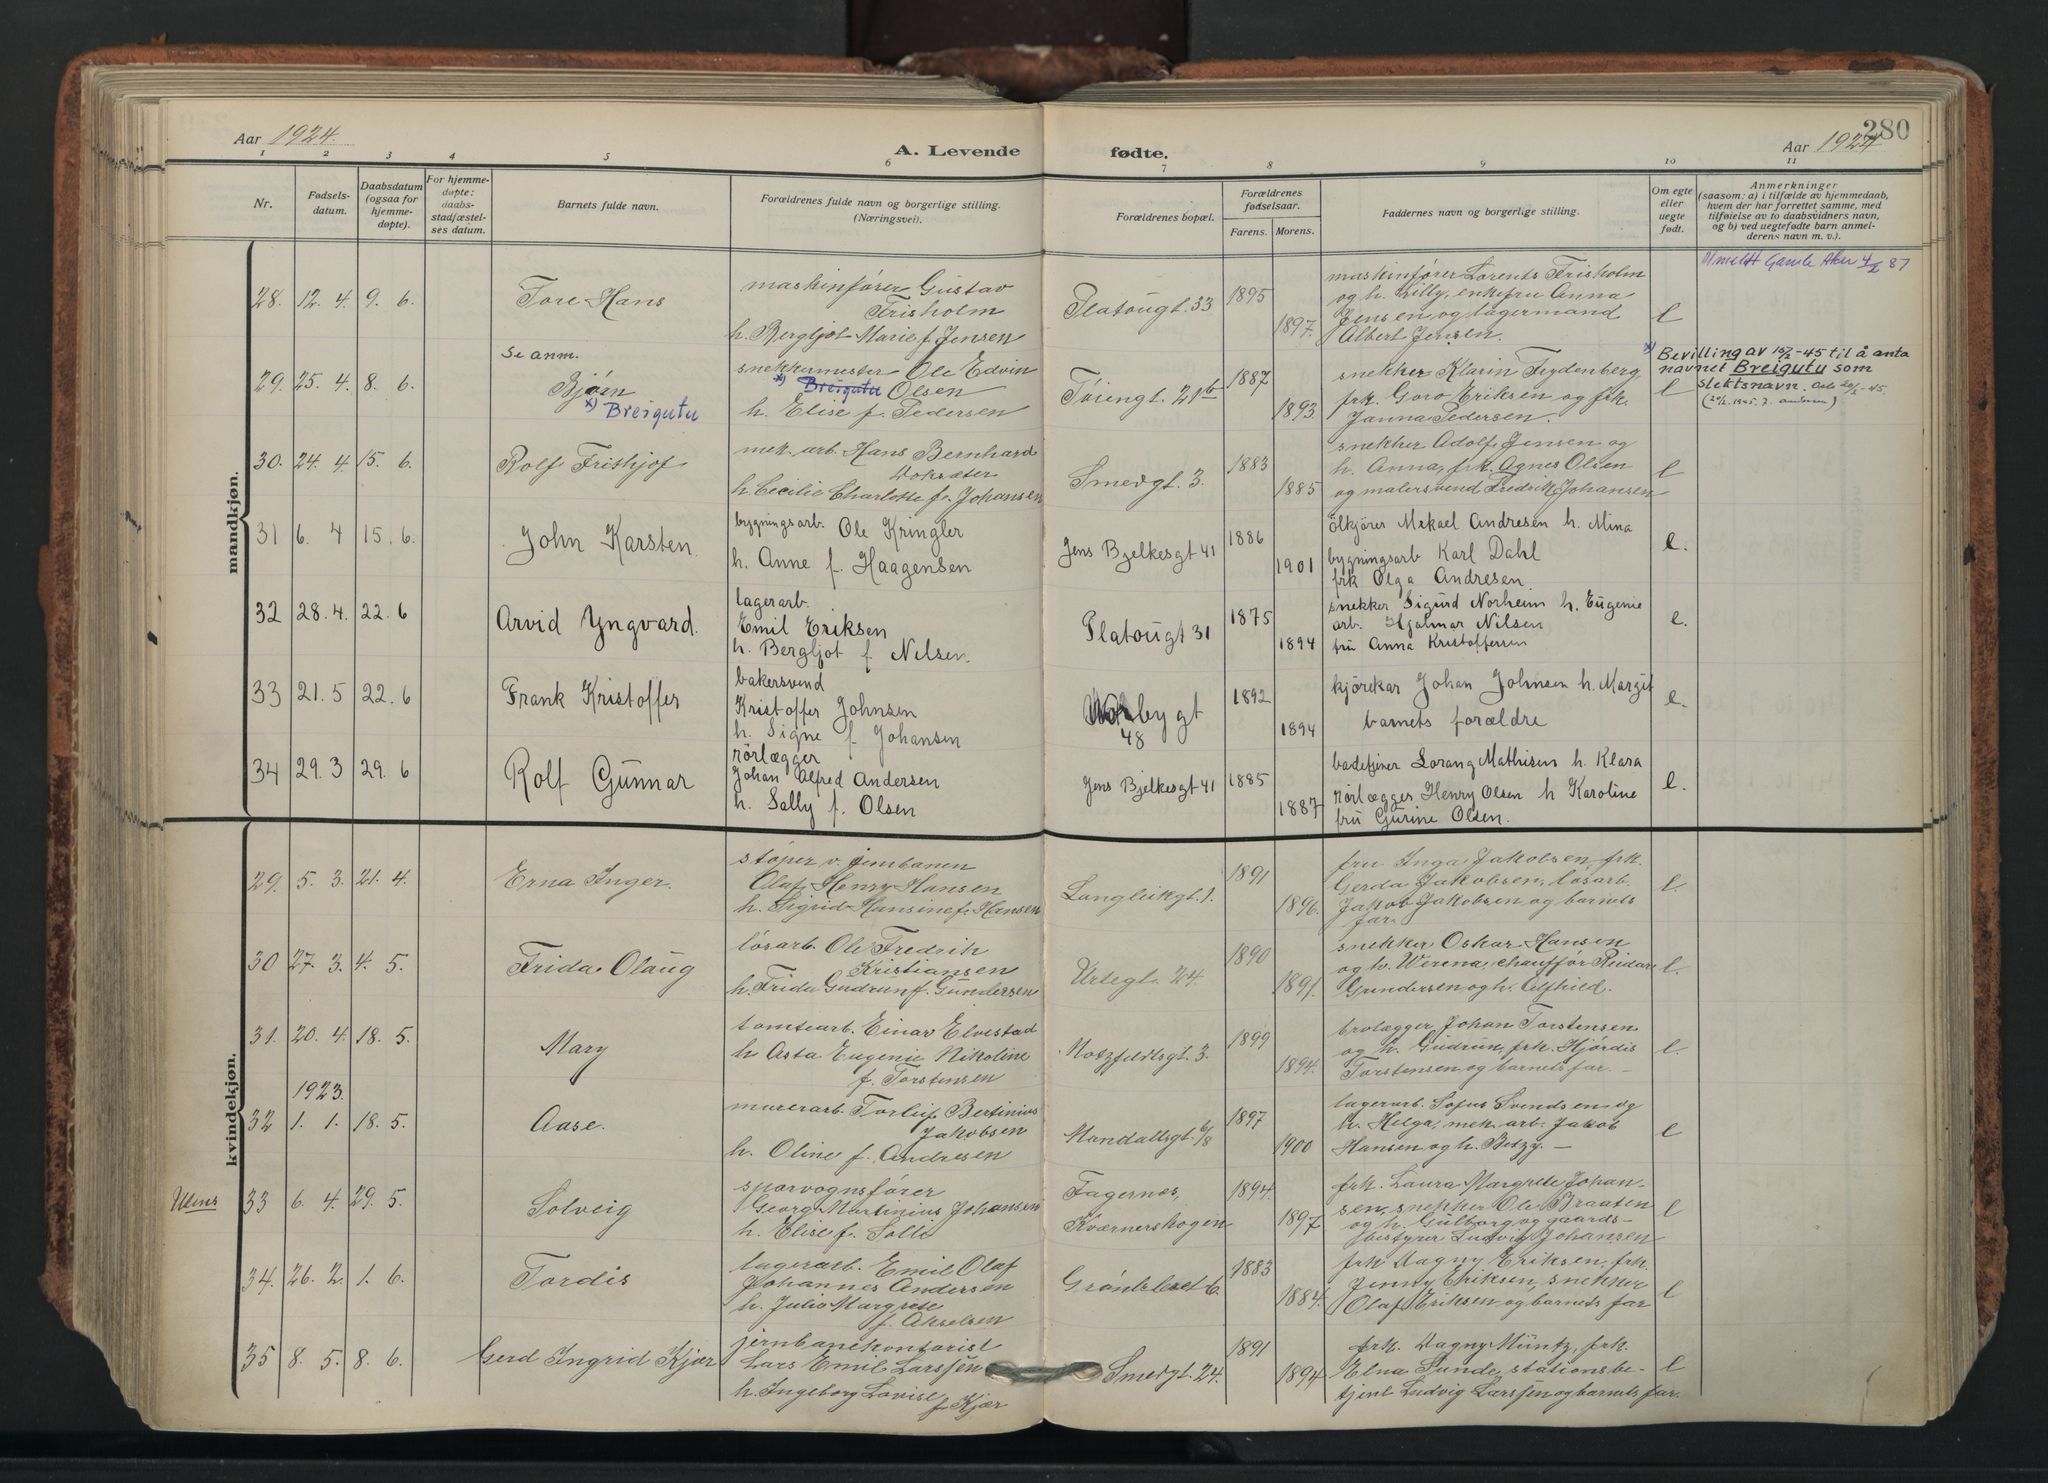 280
Aar 1924.
A. Levende fødte.
Aar 1924
1 2 3 4 5 6 7 8 9 10 11
Nr.
Fødsels-
datum.
Daabsdatum
(ogsaa for
hjemme-
døpte).
For hjemme-
døpte:
daabs-
stadfæstel-
ses datum.
Barnets fulde navn.
Forældrenes fulde navn og borgerlige stilling.
(Næringsvei).
Forældrenes bopæl.
Forældrenes
fødselsaar.
Farens. Morens.
Faddernes navn og borgerlige stilling.
Om egte
eller
uegte
født.
Anmerkninger
(saasom: a) i tilfælde av hjemmedaab,
hvem der har forrettet samme, med
tilføielse av to daabsvidners navn,
og b) ved uegtefødte barn anmel-
derens navn m. v.).
mandkjøn.
28. 12. 4. 9. 6.
Tore Hans
maskinfører Gustav
Frisholm
h. Bergljot Marie f. Jensen
Platougt. 33
1895
1897.
maskinfører Lorents Frisholm
og h. Lilly, enkefru Anna
Jensen og lagermand
Albert Jensen.
e
Utmeldt Gamle Aker 4/2 87
29. 25. 4. 8. 6.
Se anm.
Bjørn
x) Breigutu
snekkermester Ole Edvin
x) Breigutu Olsen
h. Elise f. Pedersen
Tøiengt. 21b
1887
1893.
snekker Klarin Frydenberg,
frk. Goro Eriksen og frk.
Janna Pedersen.
e
x) Bevilling av 15/2-45 til å anta
navnet Breigutu som
slektsnavn. Oslo 20/2-45.
30. 24. 4. 15. 6.
Rolf Frithjof
mek. arb. Hans Bernhard
h. Cecilie Charlotte f. Johansen
Smedgt. 3.
1883
1885
snekker Adolf Jensen og
h. Anna, frk. Agnes Olsen
og malersvend Fredrik Johansen
e
31 6. 4 15. 6.
John Karsten.
bygningsarb. Ole Kringler
h. Anne f. Haagensen
Jens Bjelkesgt 41
1886
1901
ölkjører Mekael Andresen h. Mina
bygningsarb Karl Dahl
frk Olga Andresen.
e.
32 28. 4. 22. 6
Arvid Yngvard.
lagerarb.
Emil Eriksen
h. Bergljot f. Nilsen.
Platougt 31
1875
1894
snekker Sigurd Norheim h. Eugenie
arb. Hjalmar Nilsen
fru Anna Kristoffersen
e.
33 21. 5 22. 6
Frank Kristoffer
bakersvend
Kristoffer Johnsen
h. Signe f. Johansen
48
1892
1894
kjørekar Johan Johnsen h. Margit
barnets forældre
e.
34 29. 3 29. 6
Rolf Gunnar
rörlægger
Johan Alfred Andersen
h. Sally f. Olsen
Jens Bjelkesgt 41
1885
1887
badetjener Lorang Mathisen h. Klara
rörlægger Henry Olsen h Karoline
fru Gurine Olsen.
e.
kvindekjøn.
29. 5. 3. 21. 4.
Erna Inger.
støper v. jernbanen
Olaf Henry Hansen
h. Sigrid Hansine f. Hansen
Langleikgt. 1.
1891
1896.
fru Inga Jakobsen, frk.
Gerda Jakobsen, løsarb.
Jakob Jakobsen og barnets
far.
e.
30 27. 3. 4. 5.
Frida Olaug
løsarb. Ole Fredrik
Kristiansen
h. Frida Gudrun f. Gundersen
Urtegt. 24.
1890
1891.
snekker Oskar Hansen
og h. Werena, chauffør Reidar
Gundersen og h. Alfhild.
e.
31. 20. 4. 18. 5.
Mary
tomtearb. Einar Elvestad
h Asta Eugenie Nikoline
f. Torstensen
Motzfeldtsgt. 3.
1899
1894.
brolægger Johan Torstensen
og h. Gudrun, frk. Hjørdis
Torstensen og barnets far. –
e.
1923.
32 1. 1. 18. 5.
Aase.
murerarb. Torlief Bertinius
Jakobsen
h. Oline f. Andresen
Mandallsgt. 6/8
1897
1900
lagerarb. Sofus Svendsen og
h. Helga, mek. arb. Jakob
Hansen og h. Betzy. –
e
Utens
33 6. 4. 29. 5.
Solveig
sporvognsfører
Georg Martinius Johansen
h. Elise f. Solli
Fagernæs,
Kværnerskogen
1894.
1897
frk. Laura Margrete Johan-
sen, snekker Ole Braaten
og h. Gulborg og gaards-
bestyrer Ludvig Johansen
e
34. 26. 2. 1. 6.
Tordis
lagerarb. Emil Olaf
Johannes Andersen
h. Julie Margrete
f. Akselsen
Grønlebret 6.
1883
1884.
frk Dagny Eriksen, frk.
Jenny Eriksen, snekker
Olaf Eriksen og barnets far
e
35 8. 5. 8. 6.
Gerd Ingrid Kjær
jernbanekontorist
Lars Emil Larssen
h. Ingeborg Lovise
f. Kjær
Smedgt. 24.
1891
1894
frk. Dagny Müntz, frk.
Elna Sunde, stationsbe-
tjent Ludvig Larssen og barnets far.
e